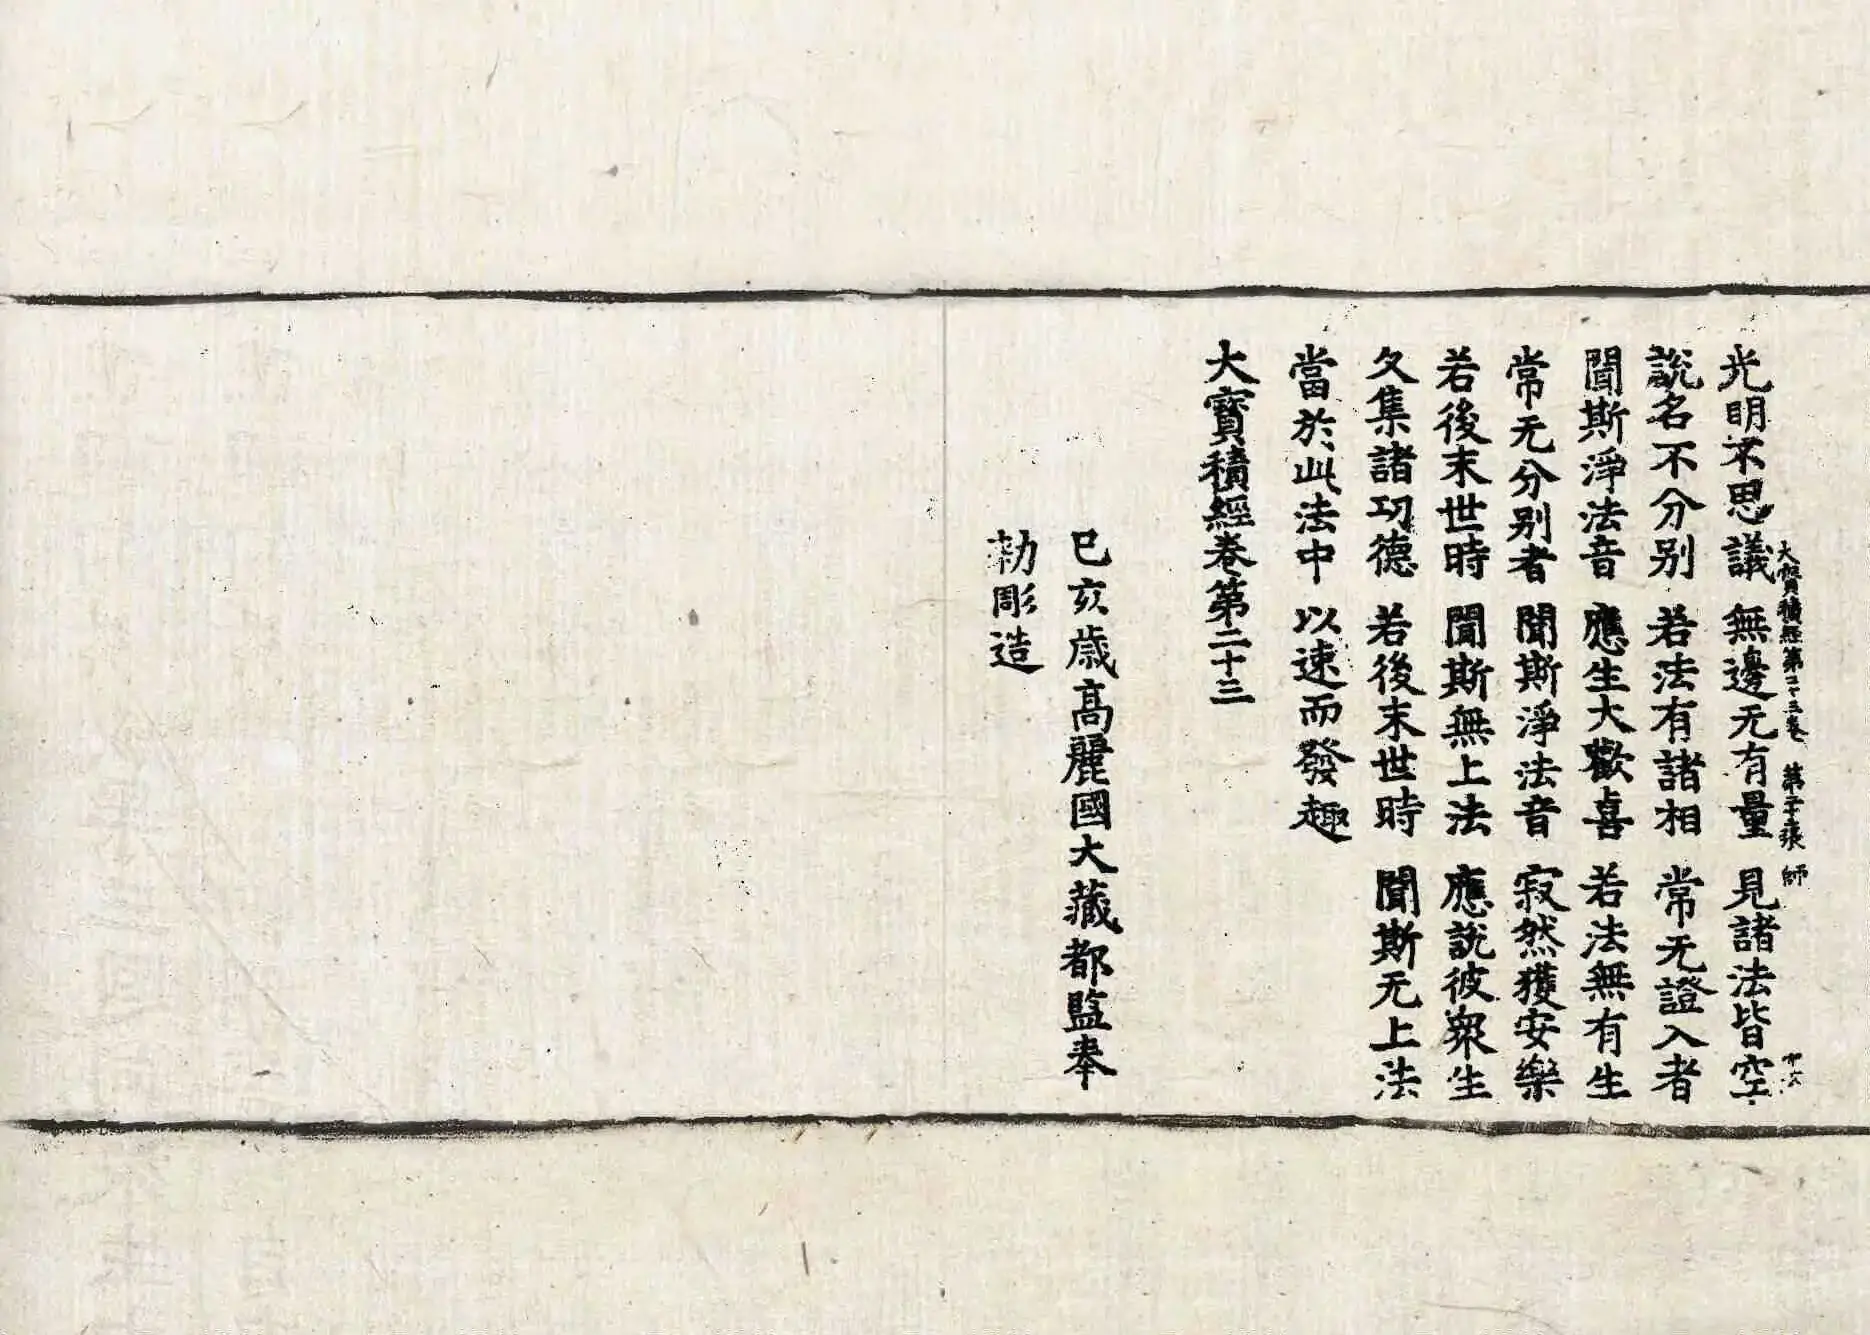 大寶積經第二十三卷 第二十張 師
光明不思議 無邊无有量 見諸法皆空
說名不分別 若法有諸相 常无證入者
聞斯淨法音 應生大歡喜 若法無有生
常无分別者 聞斯淨法音 寂然獲安樂
若後末世時 聞斯無上法 應說彼衆生
久集諸功德 若後末世時 聞斯无上法
當於此法中 以速而發趣
大寶積經卷第二十三
己亥歲高麗國大藏都監奉
勑彫造